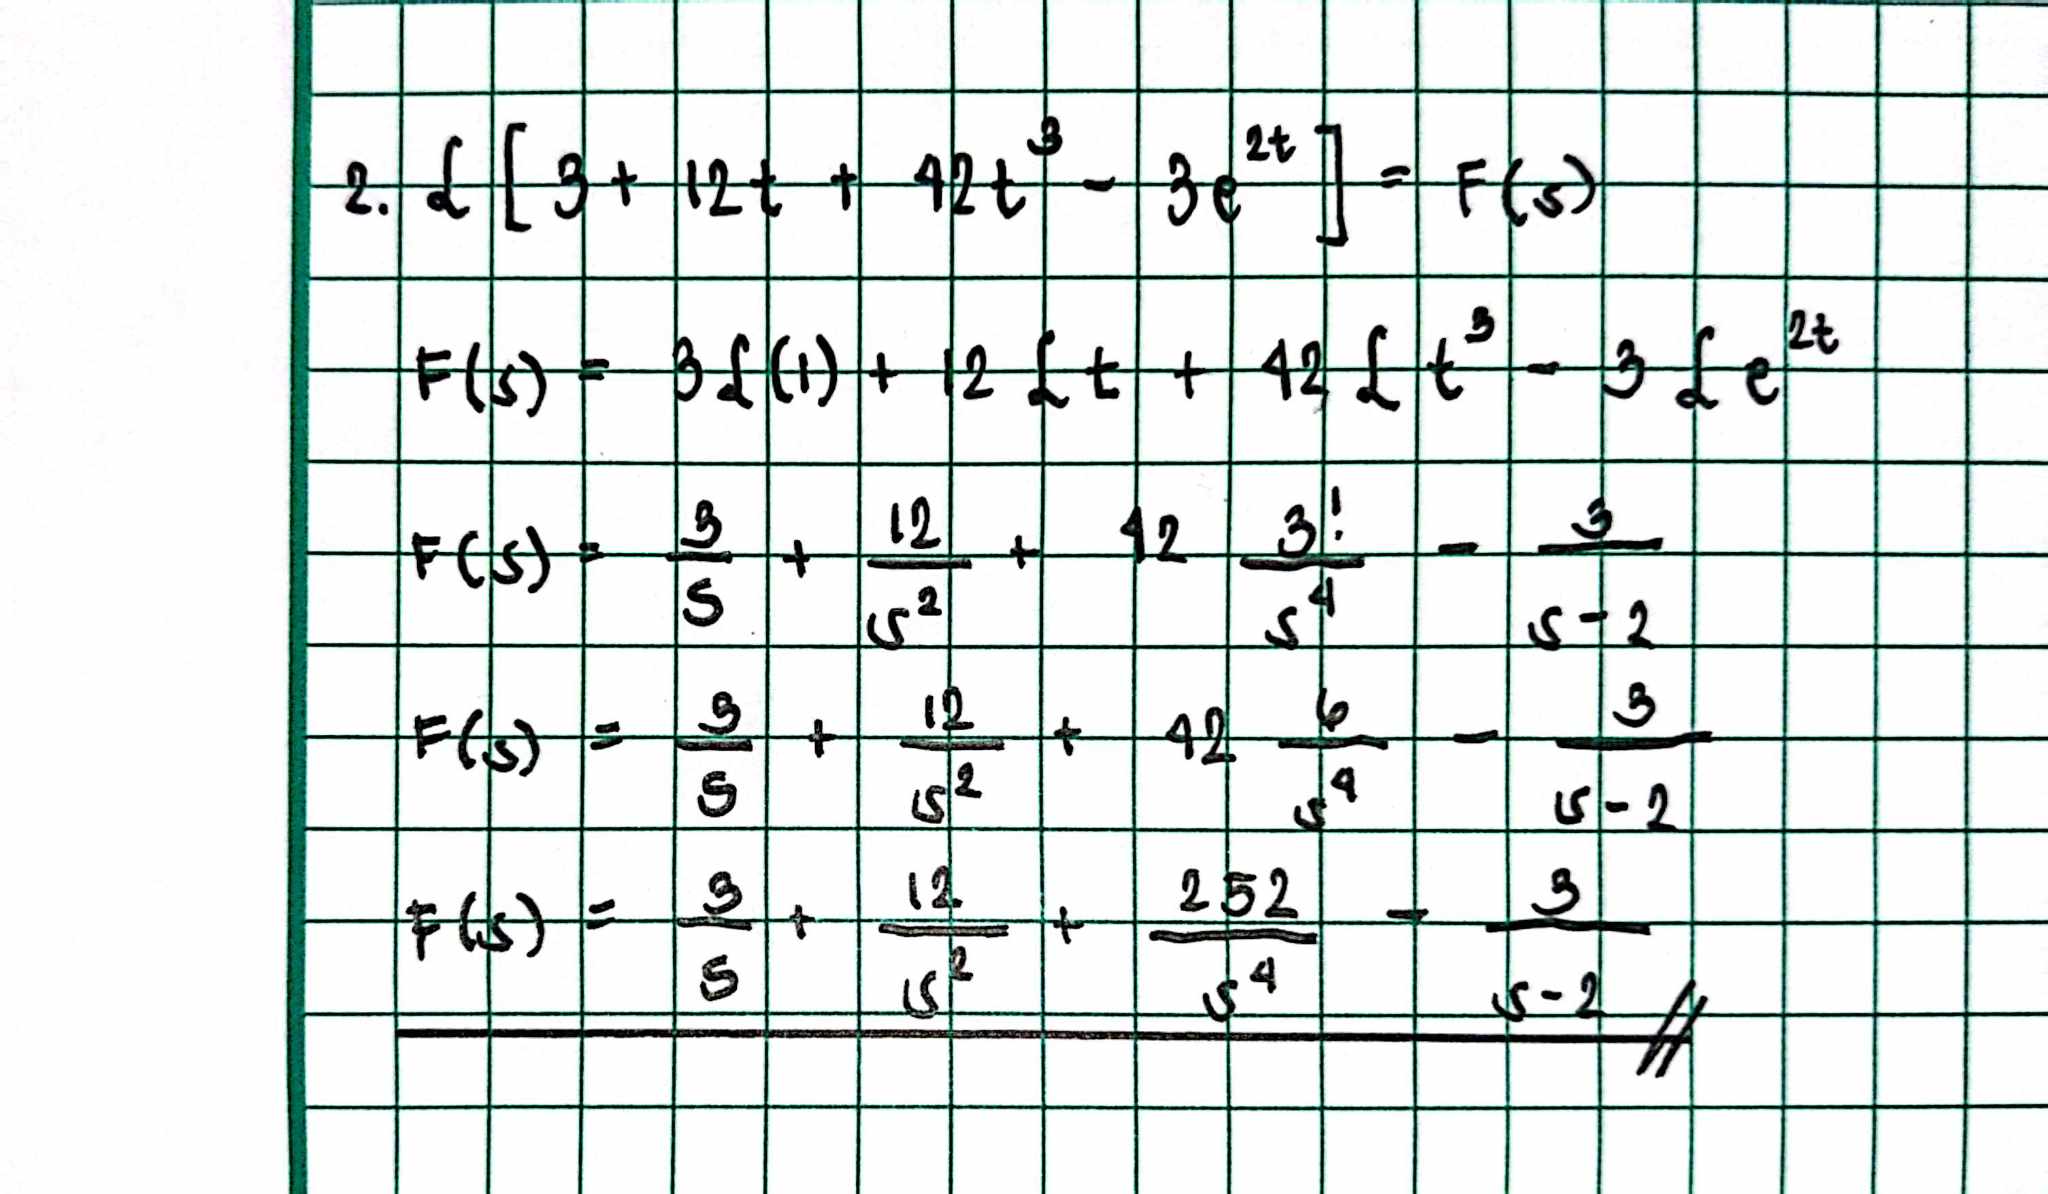 2. ℒ [ 3 + 12t + 42t³ - 3e²ᵗ ] = F(s)
F(s) = 3ℒ(1) + 12 ℒ t + 42 ℒ t³ - 3 ℒ e²ᵗ
F(s) = 3/s + 12/s² + 42 3!/s⁴ - 3/s-2
F(s) = 3/s + 12/s² + 42 6/s⁴ - 3/s-2
F(s) = 3/s + 12/s² + 252/s⁴ - 3/s-2